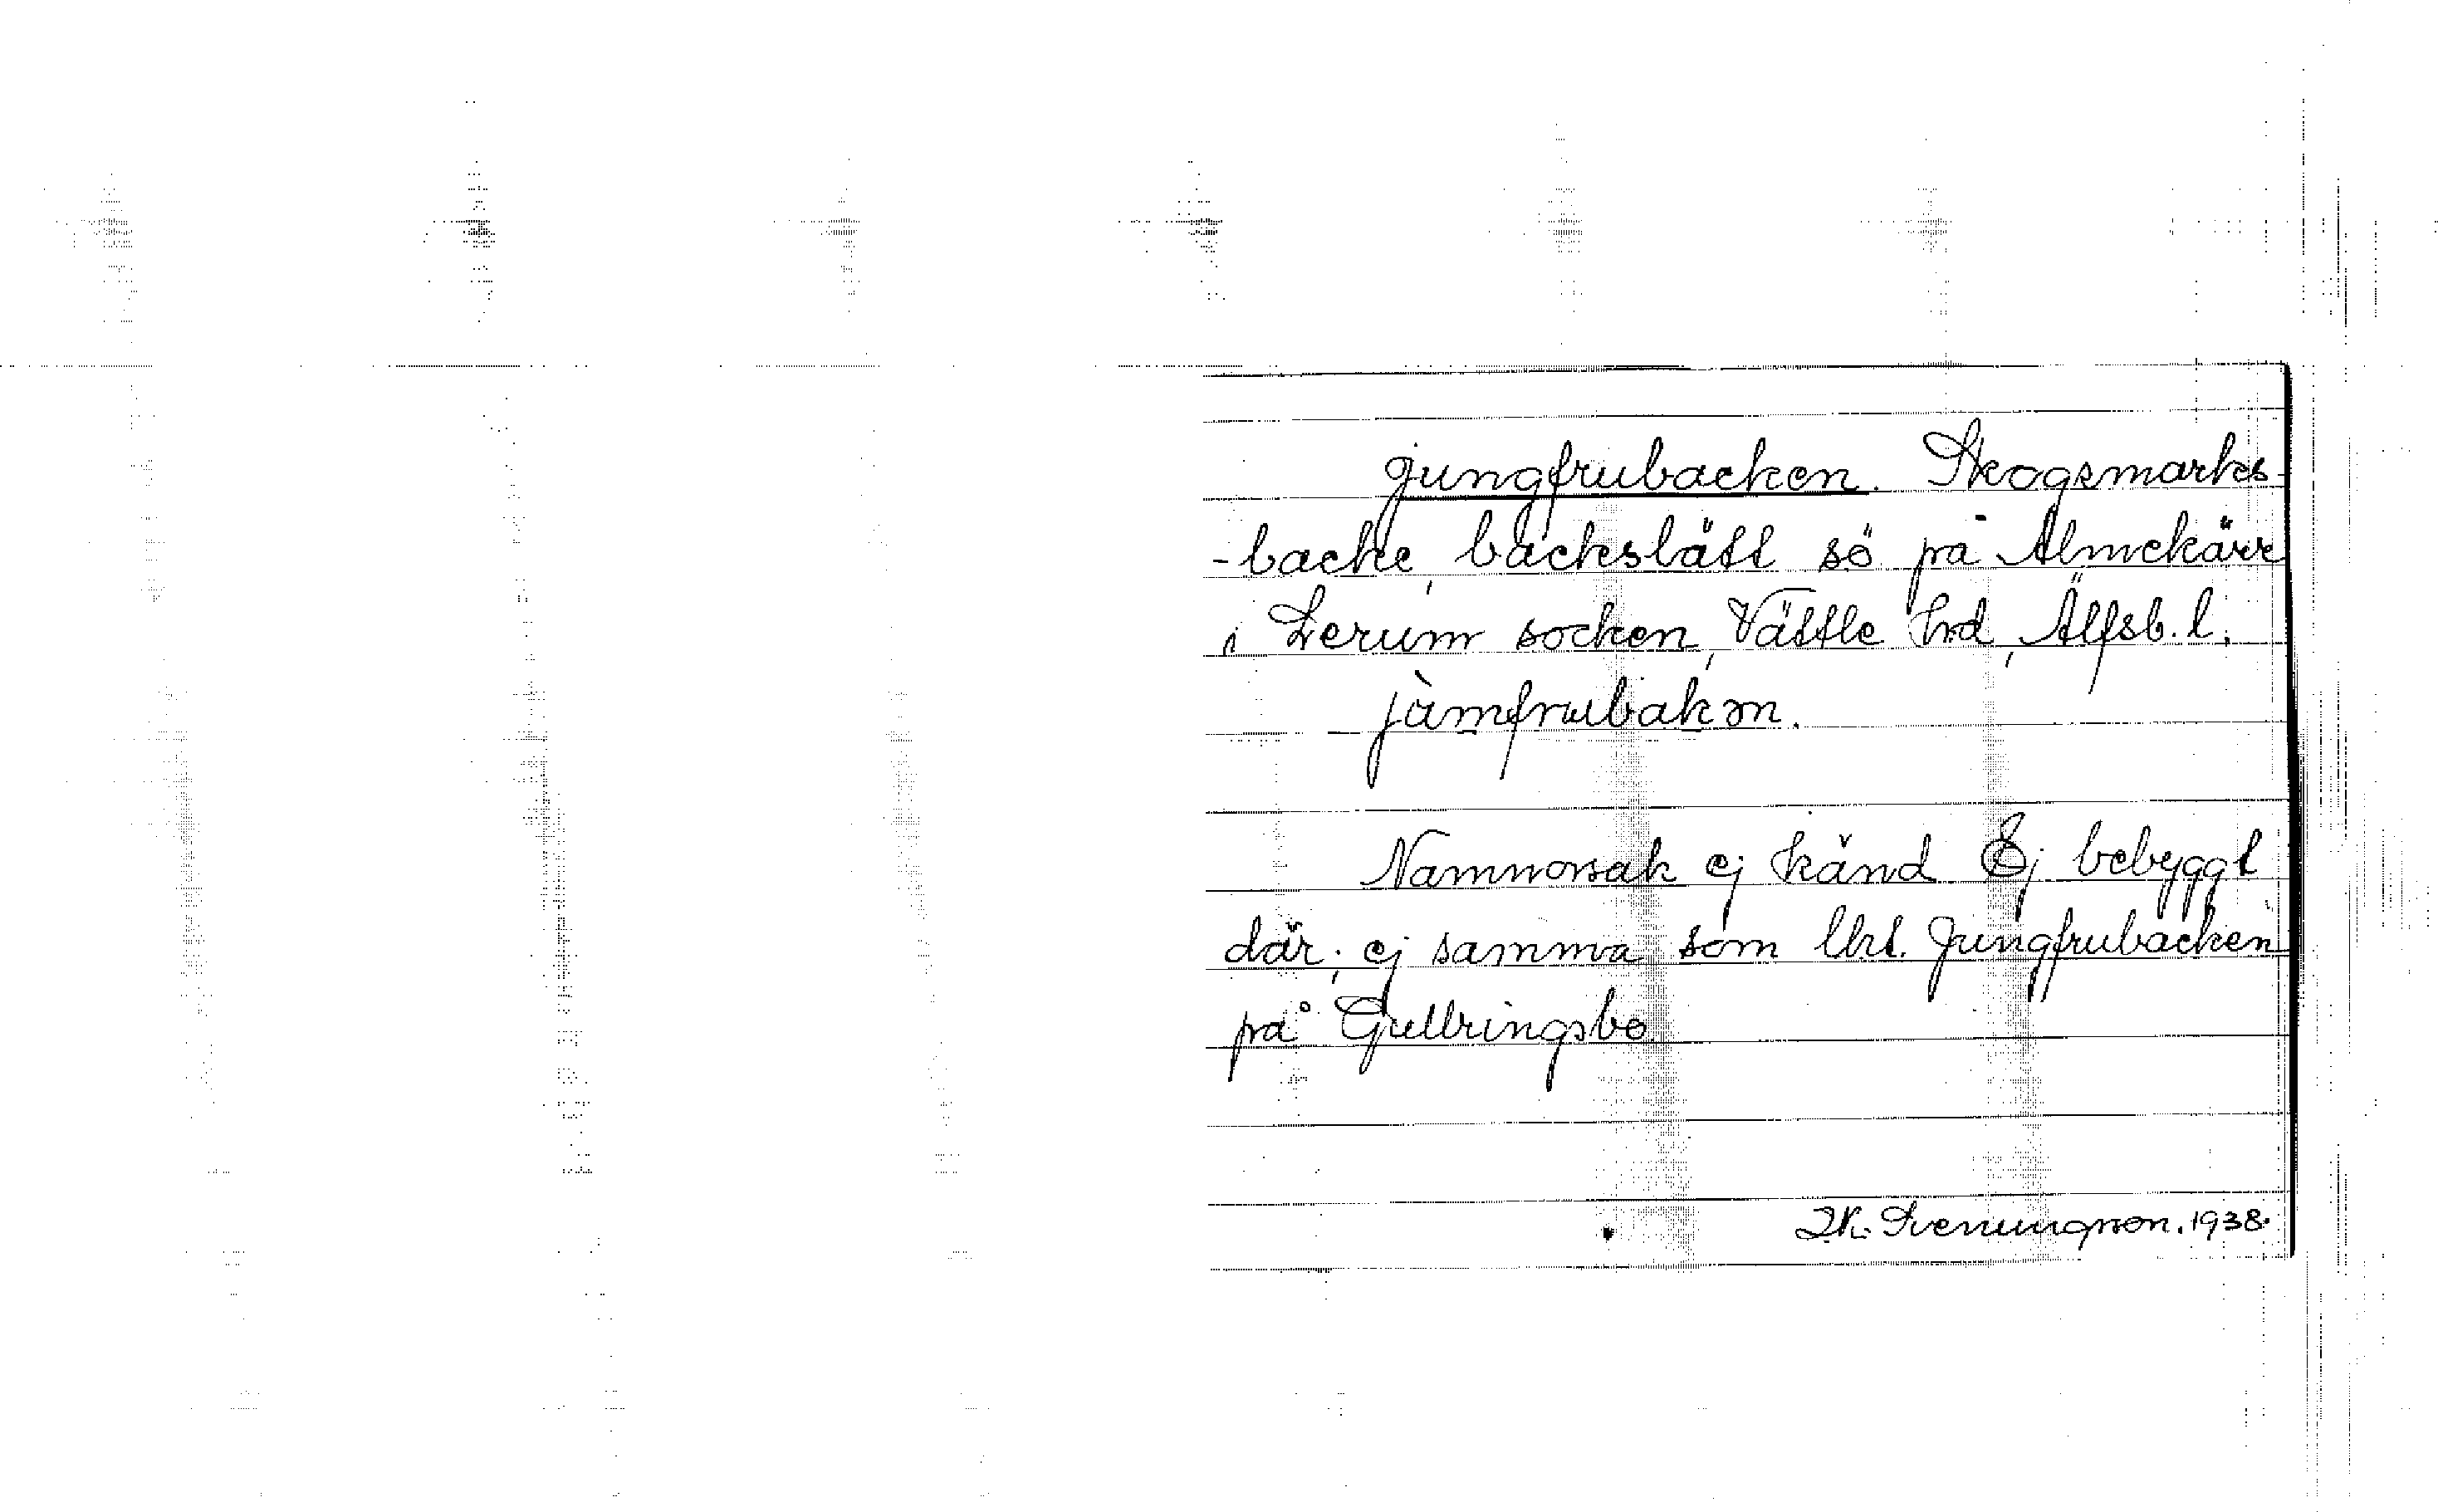 Jungfrubacken. Skogsmarks
-backe, backslätt sö på Almekärr
i Lerum socken, Vättle hd, Älfsb. l.
jùmfrubakən.
Namnorsak ej känd Ej bebyggt
där; ej samma som lht. Jungfrubacken
på Gullringsbo
Svenungsson. 1938.